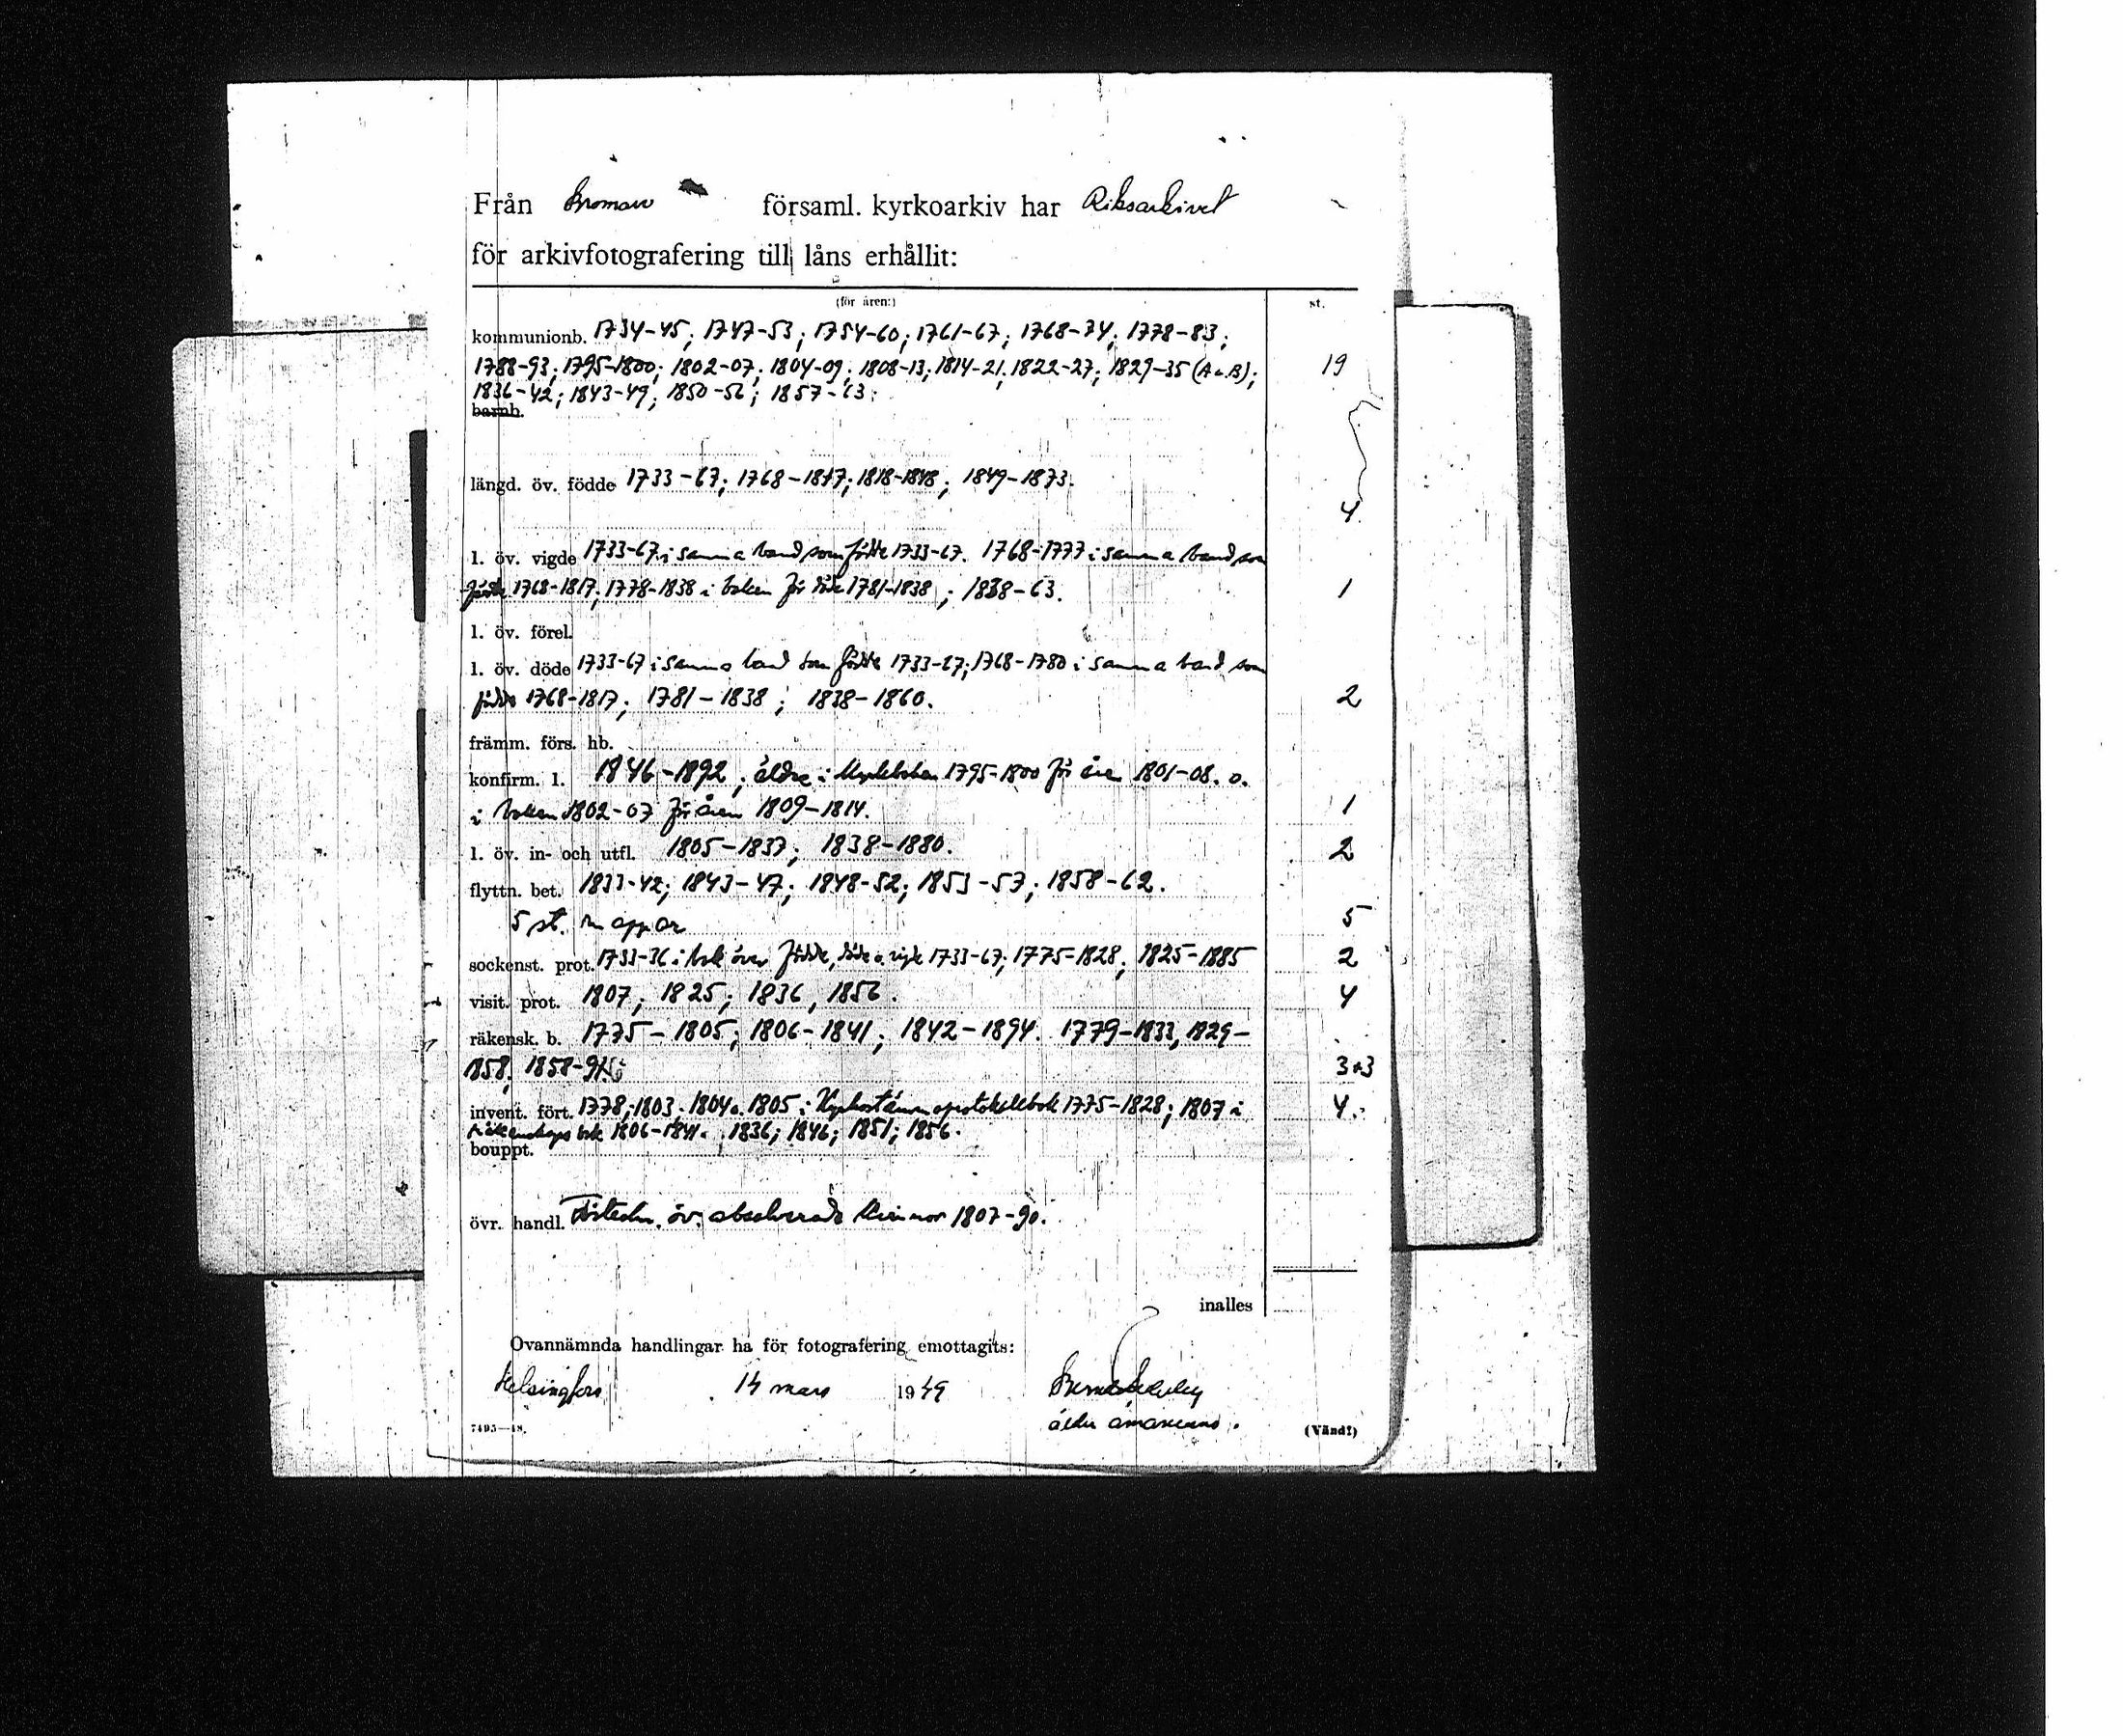 Från Bromarv församl. kyrkoarkiv har Riksarkivet
för arkivfotografering till låns erhållit:
(för åren:) st.
kommunionb. 1734-45; 1747-53; 1754-60; 1761-67; 1768-74; 1778-83;
1788-93; 1795-1800; 1802-07; 1804-09; 1808-13; 1814-21; 1822-27; 1829-35 (A o. B); 19
1836-42; 1843-49; 1850-56; 1857-63;
barnb.
längd. öv. födde 1733-67; 1768-1817; 1818-1848; 1849-1873.
4
l. öv. vigde 1733-67 i samma band som födde 1733-67. 1768-1777 i samma band som
födde 1768-1817; 1778-1838 i boken för döde 1781-1838; 1838-63. 1
l. öv. förel.
l. öv. döde 1733-67 i samma band som födde 1733-67; 1768-1780 i samma band som
födde 1768-1817; 1781-1838; 1838-1860. 2
främm. förs. hb.
konfirm. l. 1846-1892, äldre i 1795-1800 för åren 1801-08. o.
i boken 1802-07 för åren 1809-1814. 1
l. öv. in- och utfl. 1805-1837; 1838-1880. 2
flyttn. bet. 1833-42; 1843-47; 1848-52; 1853-57; 1858-62.
5 st. mappar 5
sockenst. prot. 1733-36 i bok över födde, döde o vigde 1733-67; 1775-1828; 1825-1885 2
visit. prot. 1807; 1825; 1836, 1856. 4
räkensk. b. 1775-1805; 1806-1841; 1842-1894. 1779-1833, 1829-
1858, 1858- 3+3
invent. fört. 1778; 1803. 1804 o. 1805 i 1775-1828; 1807 i 4.
räkenskaps bok 1806-1841. 1836; 1846; 1851; 1856.
bouppt.
övr. handl. Förteckn. öv. absolverade kvinnor 1807-90.
inalles
Ovannämnda handlingar ha för fotografering emottagits:
Helsingfors 14 mars 1949
äldre amanuens.
7495—48. (Vänd!)